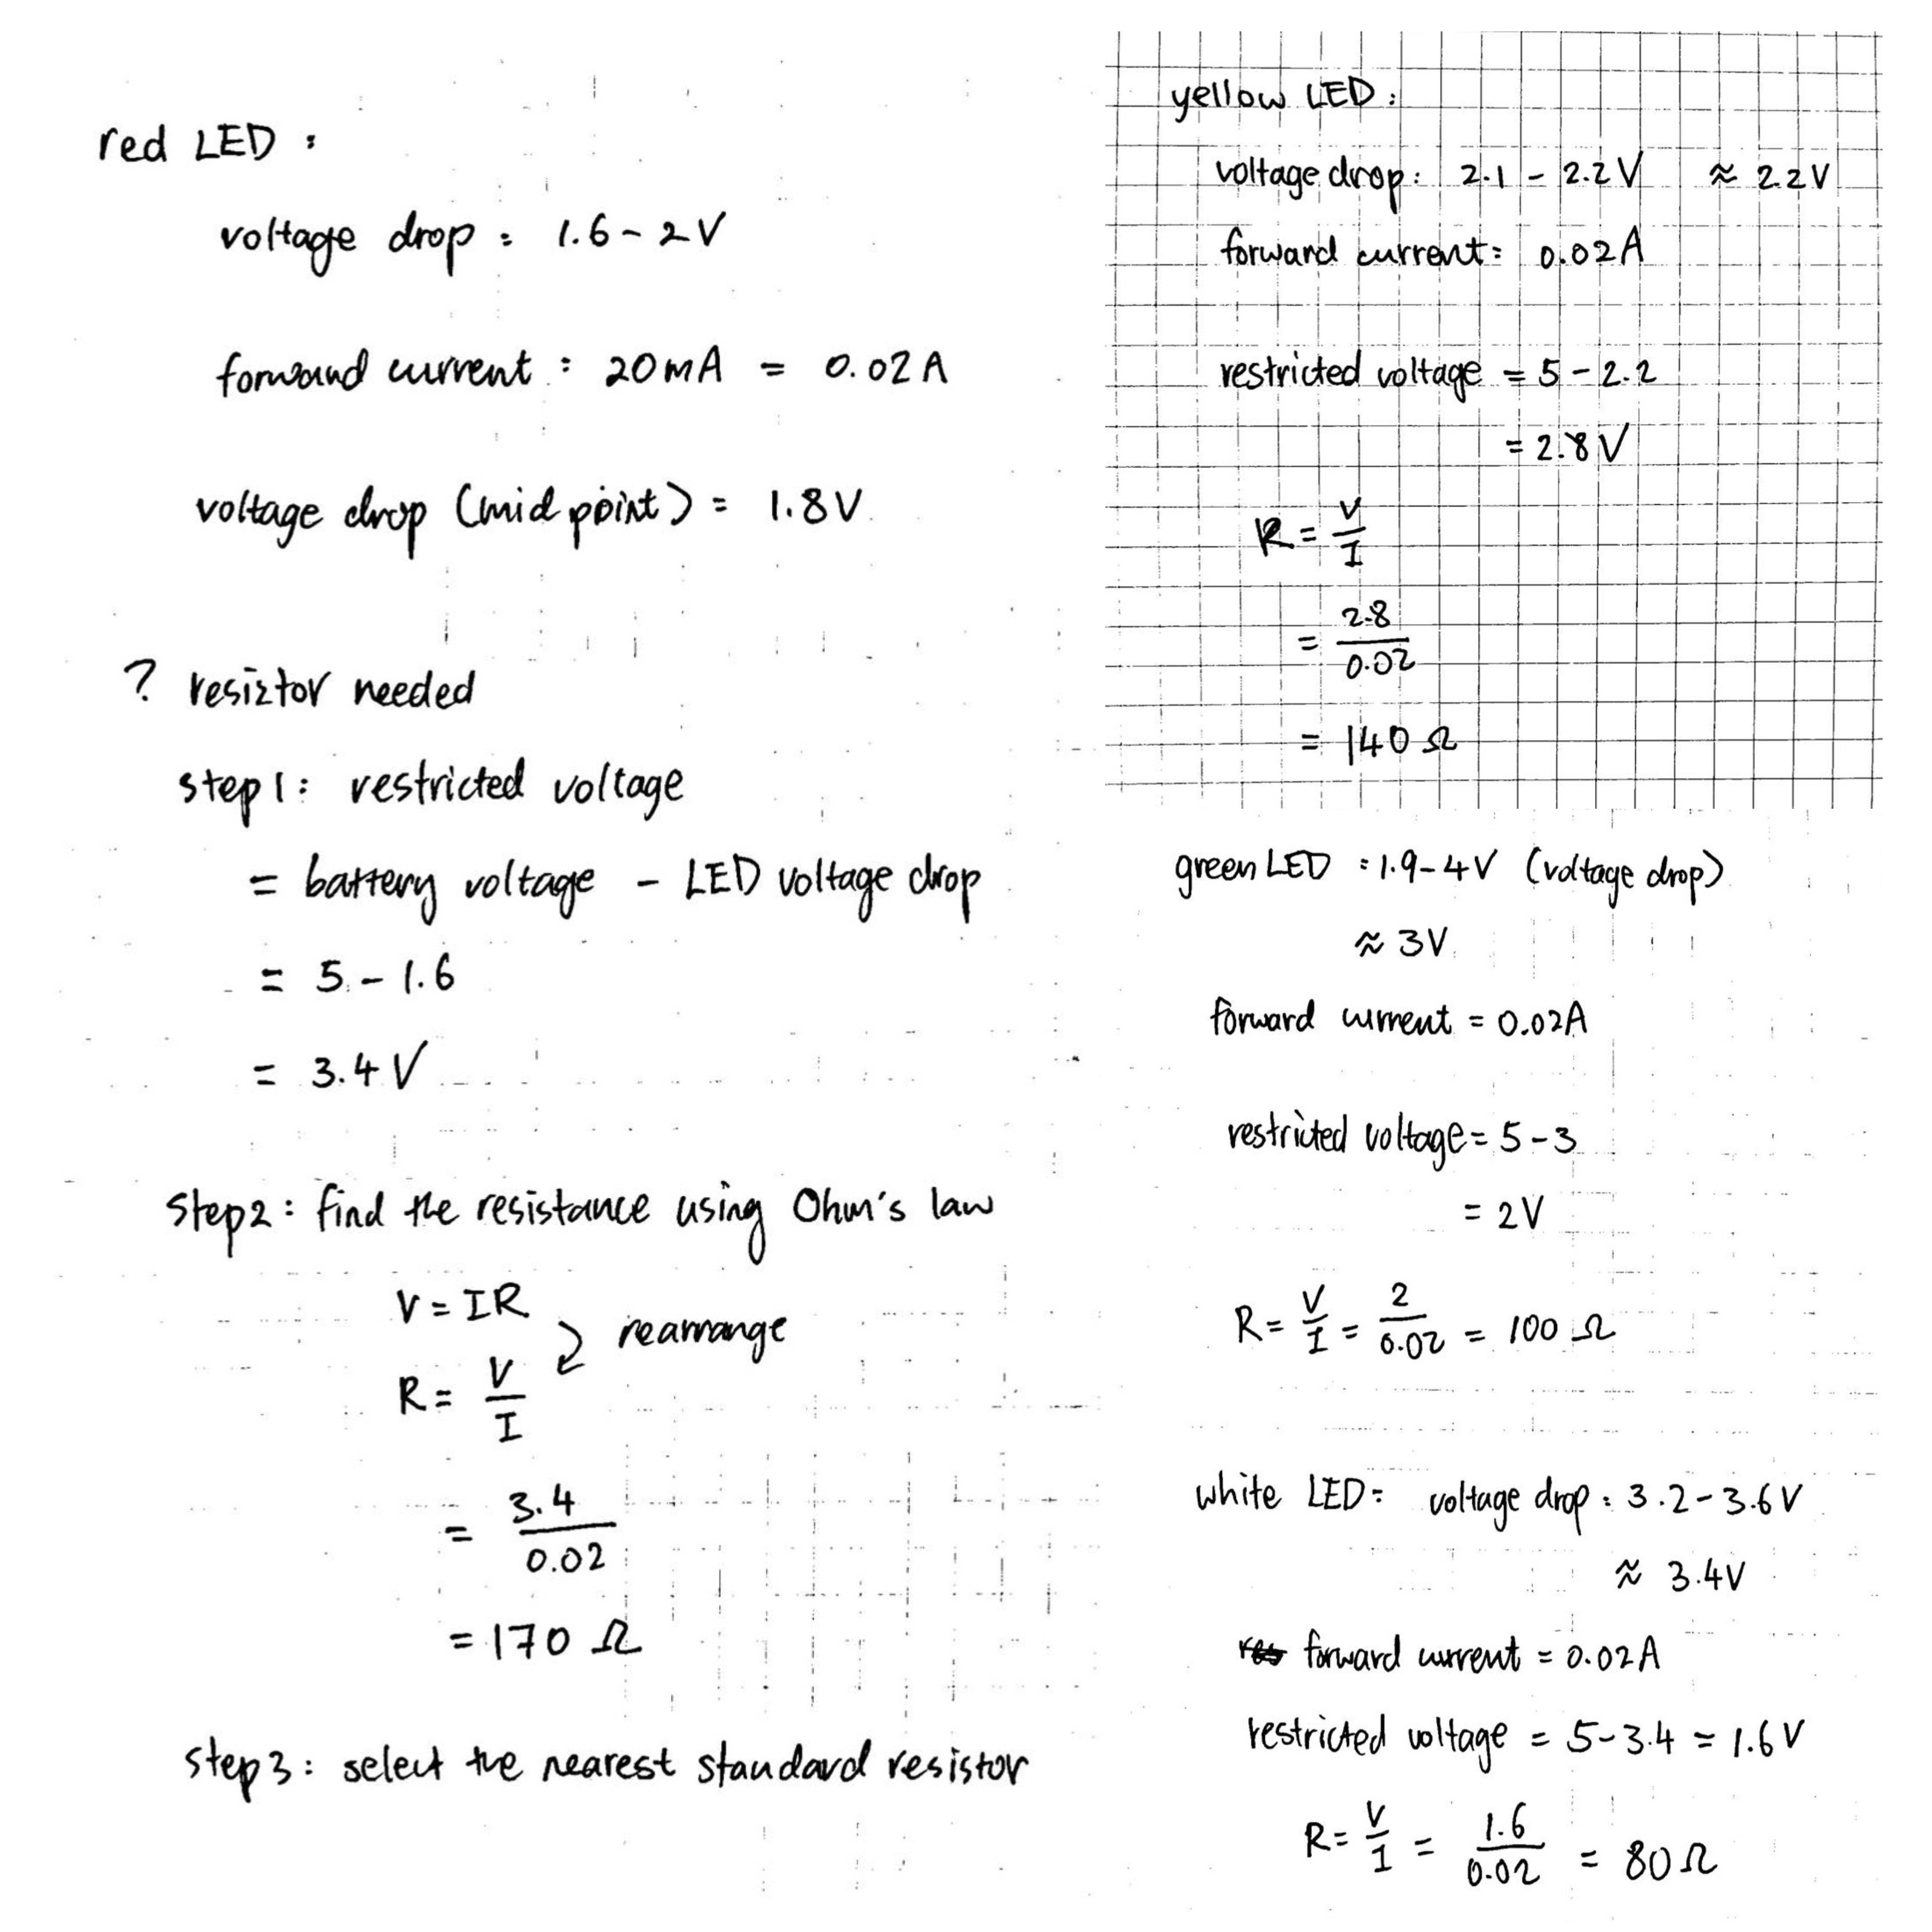 red LED :
voltage drop : 1.6 - 2 V
forward current : 20 mA = 0.02 A
voltage drop (mid point) = 1.8 V
? resiztor needed
step 1 : restricted voltage
= battery voltage - LED voltage drop
= 5 - 1.6
= 3.4 V
step 2 : find the resistance using Ohm's law
V = IR
rearrange
R = V/I
= 3.4/0.02
= 170 Ω
step 3 : select the nearest standard resistor
yellow LED :
voltage drop : 2.1 - 2.2 V ≈ 2.2 V
forward current : 0.02 A
restricted voltage = 5 - 2.2
= 2.8 V
R = V/I
= 2.8/0.02
= 140 Ω
green LED : 1.9 - 4 V (voltage drop)
≈ 3 V
forward current = 0.02 A
restricted voltage = 5 - 3
= 2 V
R = V/I = 2/0.02 = 100 Ω
white LED : voltage drop : 3.2 - 3.6 V
≈ 3.4 V
forward current = 0.02 A
restricted voltage = 5 - 3.4 = 1.6 V
R = V/I = 1.6/0.02 = 80 Ω